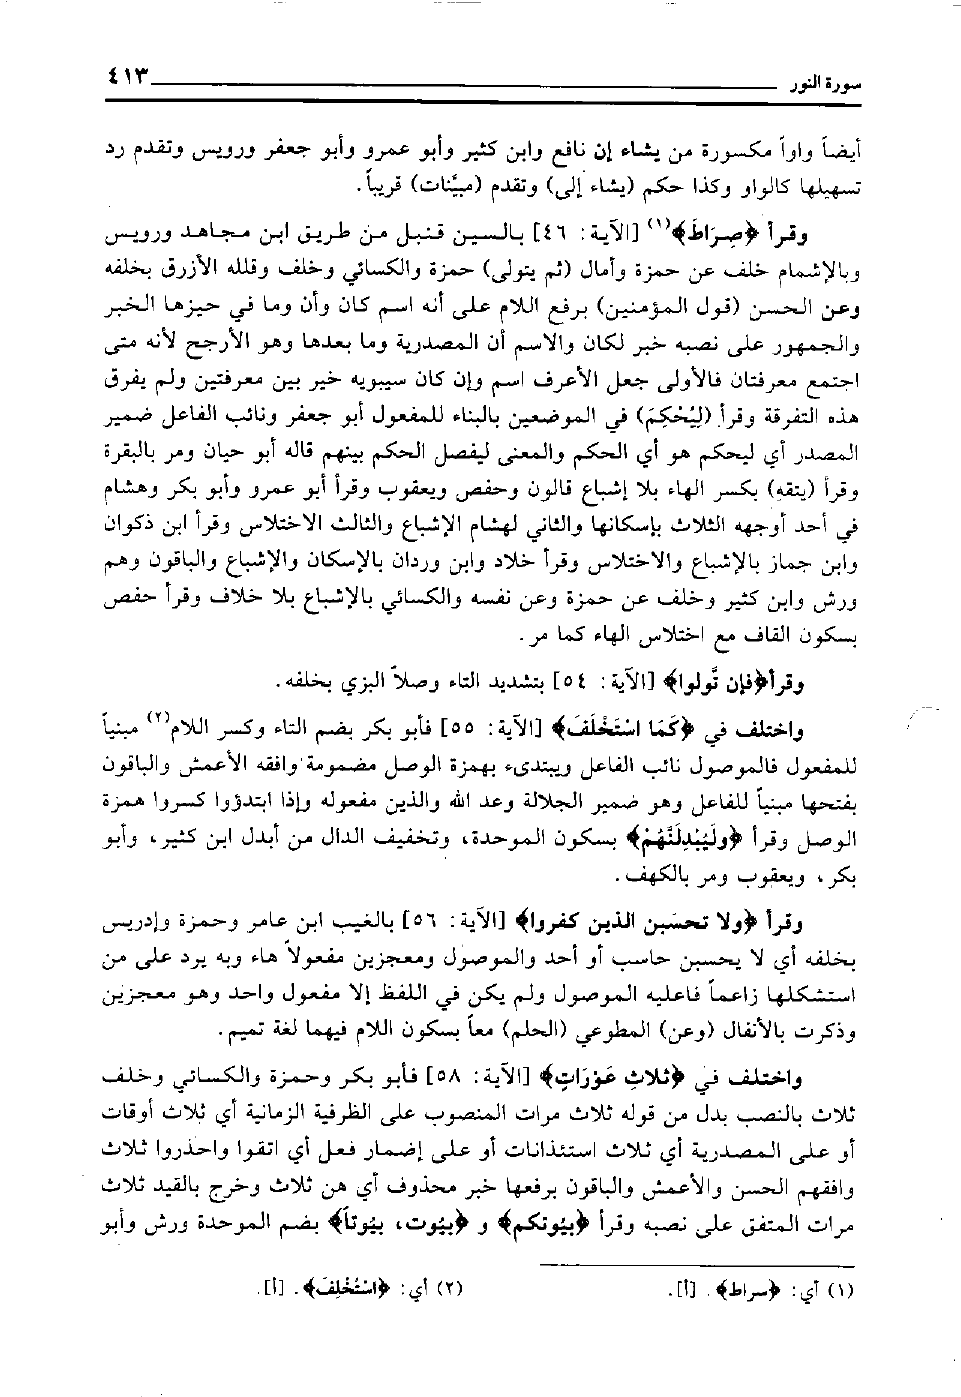 سورة النور ٤١٣
أيضاً واواً مكسورة من يشاء إن نافع وابن كثير وأبو عمرو وأبو جعفر ورويس وتقدم رد
تسهيلها كالواو وكذا حكم (يشاء إلى) وتقدم (مبيّنات) قريباً.
وقرأ ﴿صِرَاطَ﴾(١) [الآية: ٤٦] بالسين قنبل من طريق ابن مجاهد ورويس
وبالإشمام خلف عن حمزة وأمال (ثم يتولى) حمزة والكسائي وخلف وقلله الأزرق بخلفه
وعن الحسن (قول المؤمنين) برفع اللام على أنه اسم كان وأن وما في حيزها الخبر
والجمهور على نصبه خبر لكان والاسم أن المصدرية وما بعدها وهو الأرجح لأنه متى
اجتمع معرفتان فالأولى جعل الأعرف اسم وإن كان سيبويه خير بين معرفتين ولم يفرق
هذه التفرقة وقرأ (لِيُحْكِمَ) في الموضعين بالبناء للمفعول أبو جعفر ونائب الفاعل ضمير
المصدر أي ليحكم هو أي الحكم والمعنى ليفصل الحكم بينهم قاله أبو حيان ومر بالبقرة
وقرأ (يتقهِ) بكسر الهاء بلا إشباع قالون وحفص ويعقوب وقرأ أبو عمرو وأبو بكر وهشام
في أحد أوجهه الثلاث بإسكانها والثاني لهشام الإشباع والثالث الاختلاس وقرأ ابن ذكوان
وابن جماز بالإشباع والاختلاس وقرأ خلاد وابن وردان بالإسكان والإشباع والباقون وهم
ورش وابن كثير وخلف عن حمزة وعن نفسه والكسائي بالإشباع بلا خلاف وقرأ حفص
بسكون القاف مع اختلاس الهاء كما مر.
وقرأ﴿فإن تَّولوا﴾ [الآية: ٥٤] بتشديد التاء وصلاً البزي بخلفه.
واختلف في ﴿كَمَا اسْتَخْلَفَ﴾ [الآية: ٥٥] فأبو بكر بضم التاء وكسر اللام(٢) مبنياً
للمفعول فالموصول نائب الفاعل ويبتدىء بهمزة الوصل مضمومة وافقه الأعمش والباقون
بفتحها مبنياً للفاعل وهو ضمير الجلالة وعد الله والذين مفعوله وإذا ابتدؤوا كسروا همزة
الوصل وقرأ ﴿ولَيُبْدِلَنَّهُمْ﴾ بسكون الموحدة، وتخفيف الدال من أبدل ابن كثير، وأبو
بكر، ويعقوب ومر بالكهف.
وقرأ ﴿ولا تحسَبن الذين كفروا﴾ [الآية: ٥٦] بالغيب ابن عامر وحمزة وإدريس
بخلفه أي لا يحسبن حاسب أو أحد والموصول ومعجزين مفعولاً هاء وبه يرد على من
استشكلها زاعماً فاعليه الموصول ولم يكن في اللفظ إلا مفعول واحد وهو معجزين
وذكرت بالأنفال (وعن) المطوعي (الحلم) معاً بسكون اللام فيهما لغة تميم.
واختلف في ﴿ثَلاثِ عَوْرَاتٍ﴾ [الآية: ٥٨] فأبو بكر وحمزة والكسائي وخلف
ثلاث بالنصب بدل من قوله ثلاث مرات المنصوب على الظرفية الزمانية أي ثلاث أوقات
أو على المصدرية أي ثلاث استئذانات أو على إضمار فعل أي اتقوا واحذروا ثلاث
وافقهم الحسن والأعمش والباقون برفعها خبر محذوف أي هن ثلاث وخرج بالقيد ثلاث
مرات المتفق على نصبه وقرأ ﴿بيُوتكم﴾ و ﴿بيُوت، بيُوتاً﴾ بضم الموحدة ورش وأبو
(١) أي: ﴿سراط﴾. [أ].
(٢) أي: ﴿اسْتُخْلِفَ﴾. [أ].